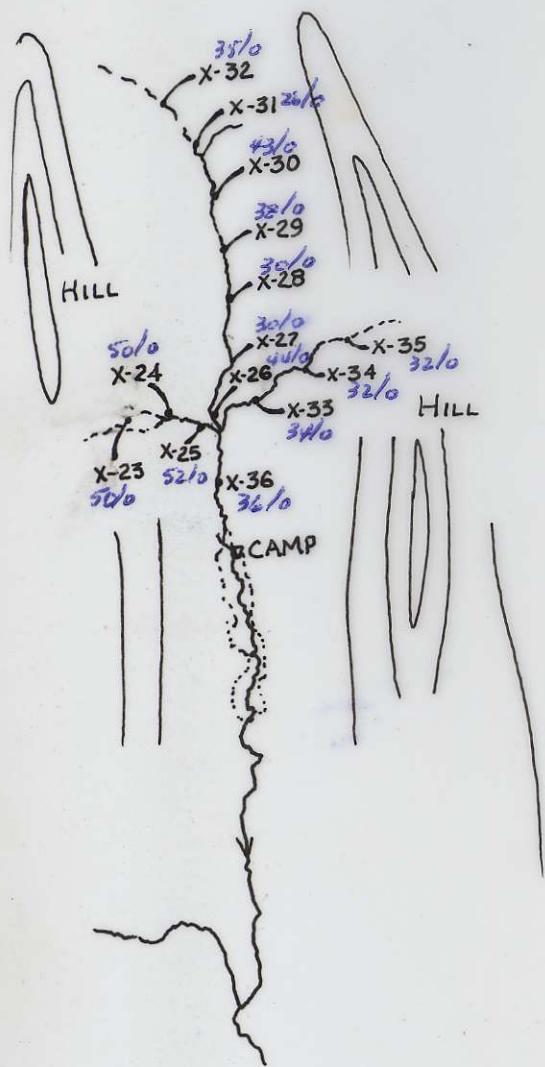 35/0
X-32
X-31 26/0
43/0
X-30
38/0
X-29
30/0
X-28
HILL
30/0
X-27
50/0
X-24
44/0
X-26
X-35
32/0
X-34
32/0
X-33
34/0
HILL
X-25
52/0
X-23
50/0
X-36
36/0
CAMP